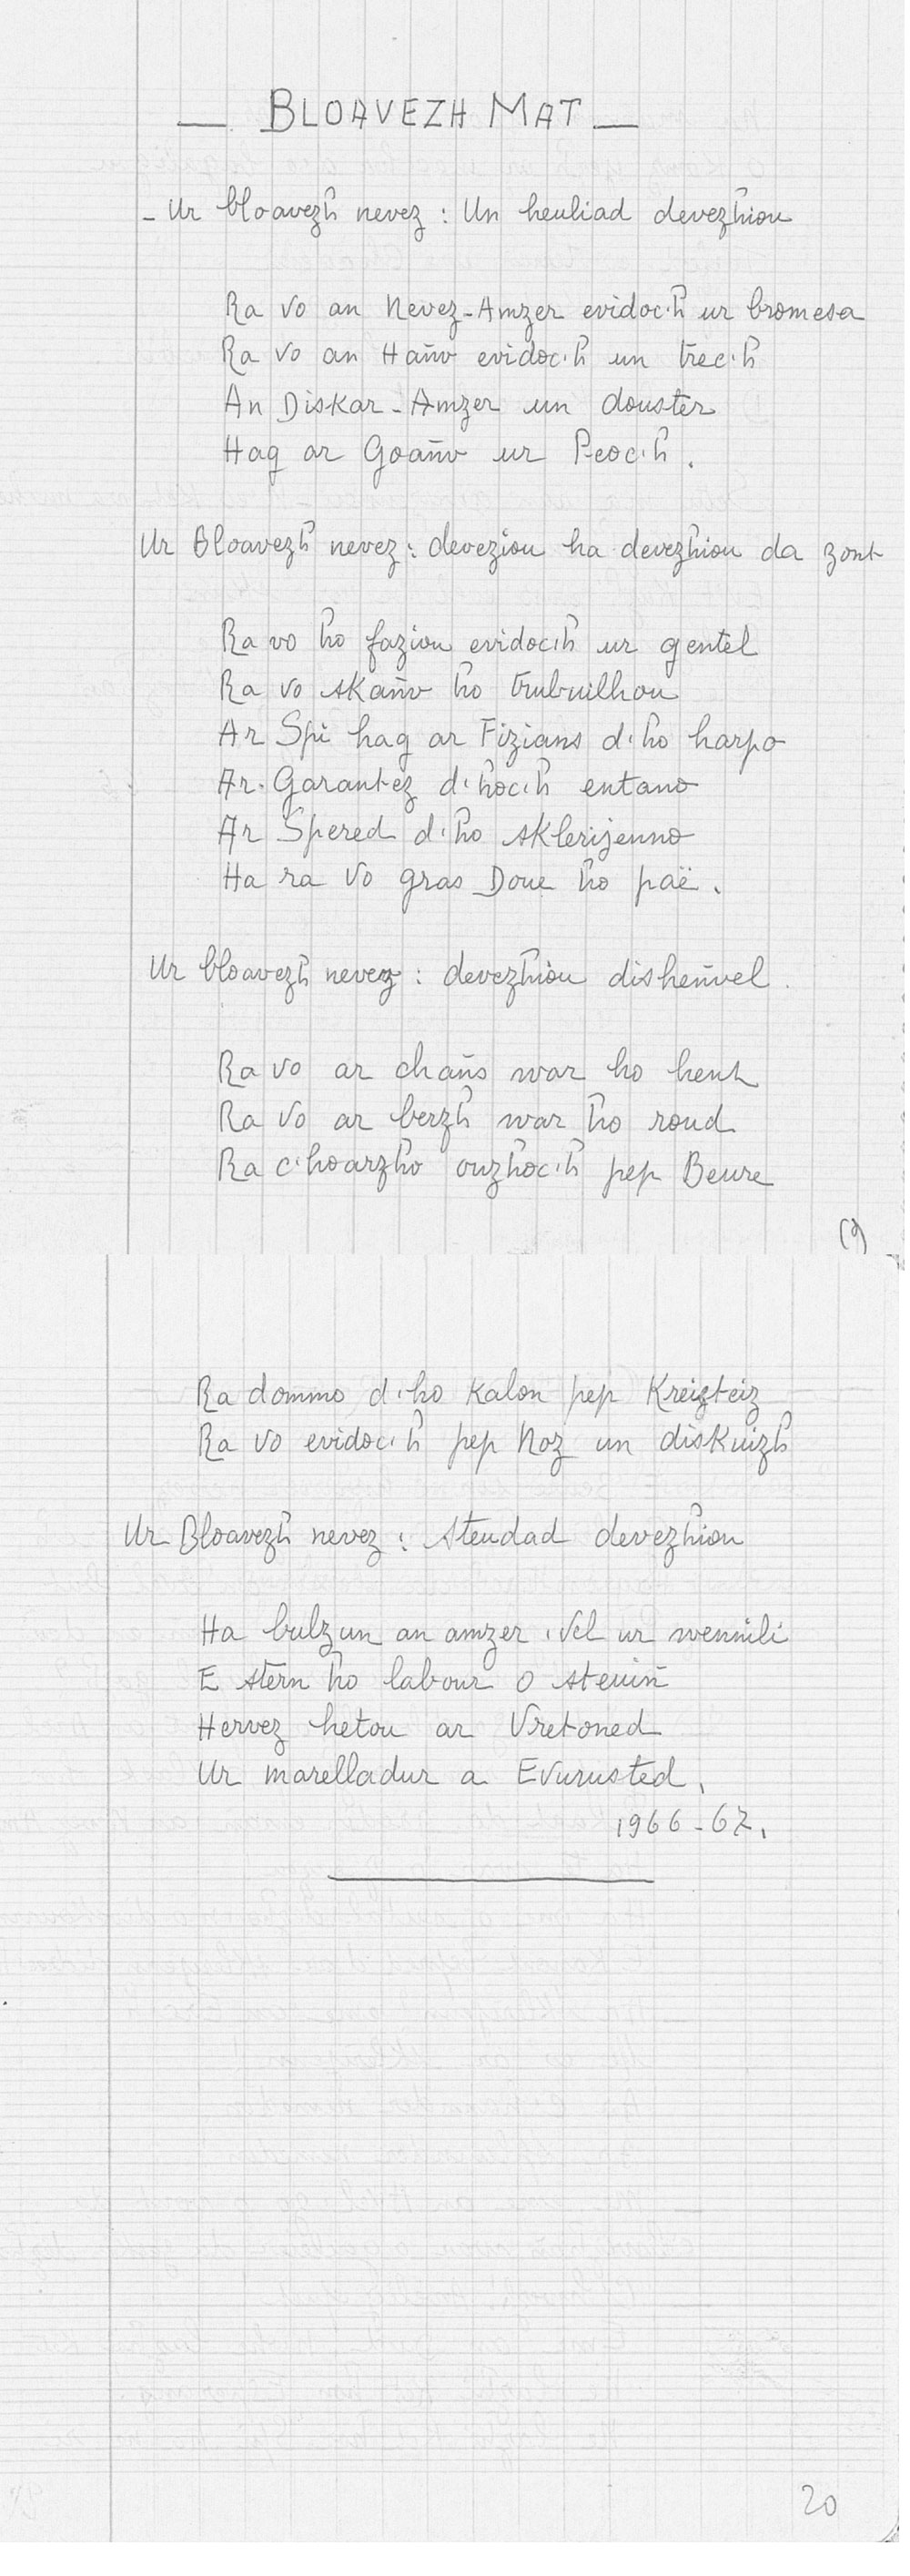 — BLOAVEZH MAT —
- Ur bloavezh nevez : Un heuliad devezhiou
Ra vo an Nevez-Amzer evidoc'h ur bromesa
Ra vo an Hañv evidoc'h un trec'h
An Diskar-Amzer un douster
Hag ar Goañv ur Peoc'h.
Ur Bloavezh nevez : deveziou ha devezhiou da zont
Ra vo ho faziou evidoc'h ur gentel
Ra vo skañv ho trubuilhou
Ar Spi hag ar Fizians d'ho harpo
Ar Garantez d'hoc'h entano
Ar Spered d'ho sklerijenno
Ha ra vo gras Doue ho paë.
Ur bloavezh nevez : devezhiou disheñvel.
Ra vo ar chañs war ho hent
Ra vo ar berzh war ho roud
Ra c'hoarzho ouzhoc'h pep Beure
(9)
Ra dommo d'ho kalon pep Kreizteiz
Ra vo evidoc'h pep Noz un diskuizh
Ur Bloavezh nevez : steudad devezhiou
Ha bulzun an amzer, vel ur wennili
E stern ho labour o steuiñ
Hervez hetou ar Vretoned
Ur marelladur a Evurusted.
1966-67.
20